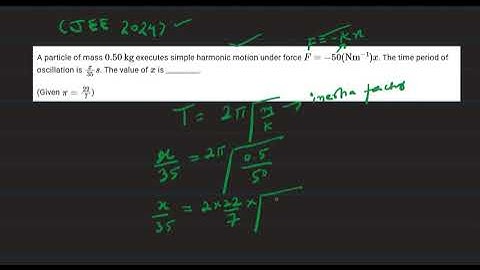 (JEE 2024)
F = -Kx
A particle of mass 0.50 kg executes simple harmonic motion under force F = −50(Nm⁻¹)x. The time period of
oscillation is x/35 s. The value of x is ______.
(Given π = 22/7)
T = 2π√(m/k) → inertia factor
x/35 = 2π√(0.5/50)
x/35 = 2×22/7×√